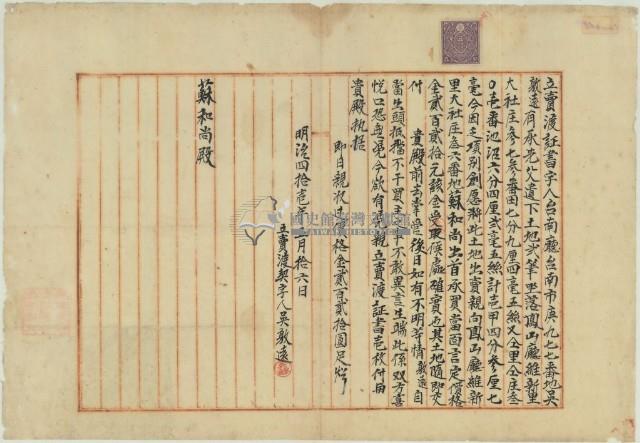 立賣渡証書字人台南廳台南市庚九七七番地吳
敦遠有承先父遺下土地貳筆坐落鳳山廳維新里
大社庄參七參番田七分九厘四毫五絲又仝里仝庄參
〇壱番池沼六分四厘貳毫五絲計壱甲四分參厘七
毫今因乏項別創愿將此土地出賣親向鳳山廳維新
里大社庄叁六番地蘇和尚出首承買當面言定價格
金貳百貳拾元該金受取候處確實也其土地隨即交
付 貴殿前去掌管後日如有不明等情敦遠自
當出頭抵擋不干買主之事不敢異言生端此係双方喜
悅口恐無憑今欲有憑親立賣渡証書壱枚付與
貴殿执据
即日親收過價格金貳百貳拾圓足炤
明治四拾壱年 月拾六日
立賣渡契字人吳敦遠
蘇和尚殿
國史館臺灣文獻館